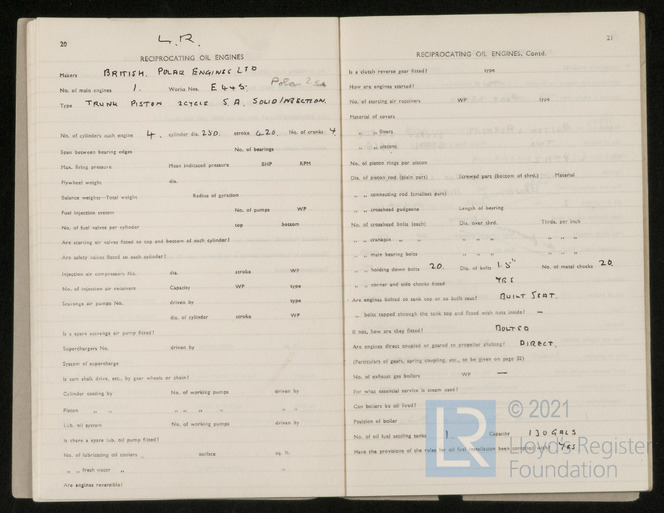 20
L.R.
RECIPROCATING OIL ENGINES
Makers BRITISH. POLAR ENGINES LTD
No. of main engines 1. Works Nos. E445. Polar 2 sa
Type TRUNK PISTON 2CYCLE S.A. SOLID INJECTION.
No. of cylinders each engine 4. cylinder dia. 250. stroke 420. No. of cranks 4.
Span between bearing edges No. of bearings
Max. firing pressure Mean indicated pressure BHP RPM
Flywheel weight dia.
Balance weights—Total weight Radius of gyration
Fuel injection system No. of pumps WP
No. of fuel valves per cylinder top bottom
Are starting air valves fitted to top and bottom of each cylinder?
Are safety valves fitted to each cylinder?
Injection air compressors No. dia. stroke WP
No. of injection air receivers Capacity WP type
Scavenge air pumps No. driven by type
dia. of cylinder stroke WP
Is a spare scavenge air pump fitted?
Superchargers No. driven by
System of supercharge
Is cam shaft drive, etc., by gear wheels or chain?
Cylinder cooling by No. of working pumps driven by
Piston " " " " " " " "
Lub. oil system No. of working pumps driven by
Is there a spare lub. oil pump fitted?
No. of lubricating oil coolers surface sq. ft.
" " fresh water " "
Are engines reversible?
21
RECIPROCATING OIL ENGINES, Contd.
Is a clutch reverse gear fitted? type
How are engines started?
No. of starting air receivers WP type
Material of covers
" " liners
" " pistons
No. of piston rings per piston
Dia. of piston rod (plain part) Screwed part (bottom of thrd.) Material
" " connecting rod (smallest part)
" " crosshead gudgeons Length of bearing
No. of crosshead bolts (each) Dia. over thrd. Thrds. per inch
" " crankpin " " " " " " " "
" " main bearing bolts " " " " " "
" " holding down bolts 20. Dia. of bolts 1.5" No. of metal chocks 20.
" " corner and side chocks fitted YES
Are engines bolted to tank top or to built seat? BUILT SEAT.
" bolts tapped through the tank top and fitted with nuts inside? —
If not, how are they fitted? BOLTED
Are engines direct coupled or geared to propeller shafting? DIRECT.
(Particulars of gears, spring coupling, etc., to be given on page 22)
No. of exhaust gas boilers WP —
For what essential service is steam used?
Can boilers be oil fired?
Position of boiler
No. of oil fuel settling tanks 1 Capacity 130 GALS
Have the provisions of the rules for oil fuel installation been complied with? YES
LR © 2021
Lloyd's Register
Foundation